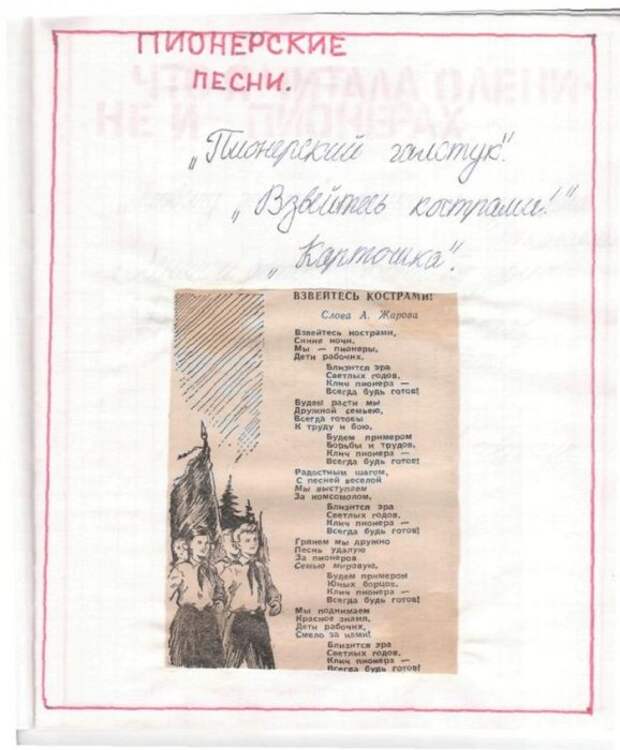 ПИОНЕРСКИЕ
ПЕСНИ.
„Пионерский галстук".
„Взвейтесь кострами!"
„Картошка".
ВЗВЕЙТЕСЬ КОСТРАМИ!
Слова А. Жарова
Взвейтесь кострами,
Синие ночи,
Мы — пионеры,
Дети рабочих.
Близится эра
Светлых годов,
Клич пионера —
Всегда будь готов!
Будем расти мы
Дружной семьею,
Всегда готовы
К труду и бою,
Будем примером
Борьбы и трудов,
Клич пионера —
Всегда будь готов!
Радостным шагом,
С песней веселой
Мы выступаем
За комсомолом,
Близится эра
Светлых годов,
Клич пионера —
Всегда будь готов!
Грянем мы дружно
Песнь удалую
За пионеров
Семью мировую,
Будем примером
Юных борцов,
Клич пионера —
Всегда будь готов!
Мы поднимаем
Красное знамя,
Дети рабочих,
Смело за нами!
Близится эра
Светлых годов,
Клич пионера —
Всегда будь готов!